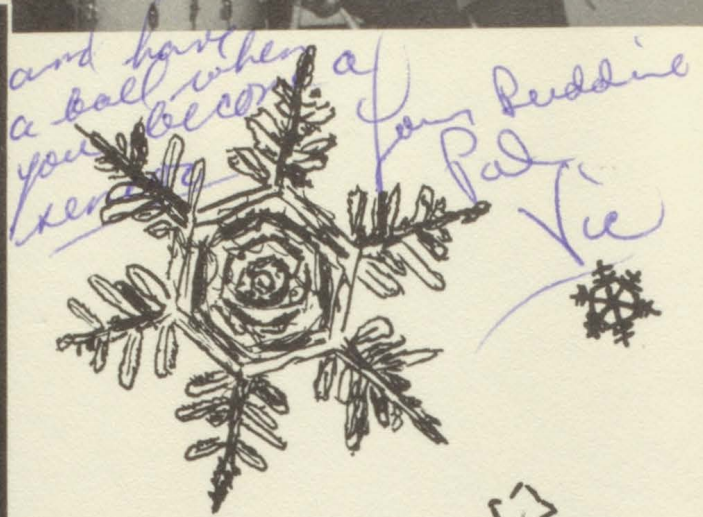 and have
a ball when
you become a
senior
Your Puddine
Pal,
Vic